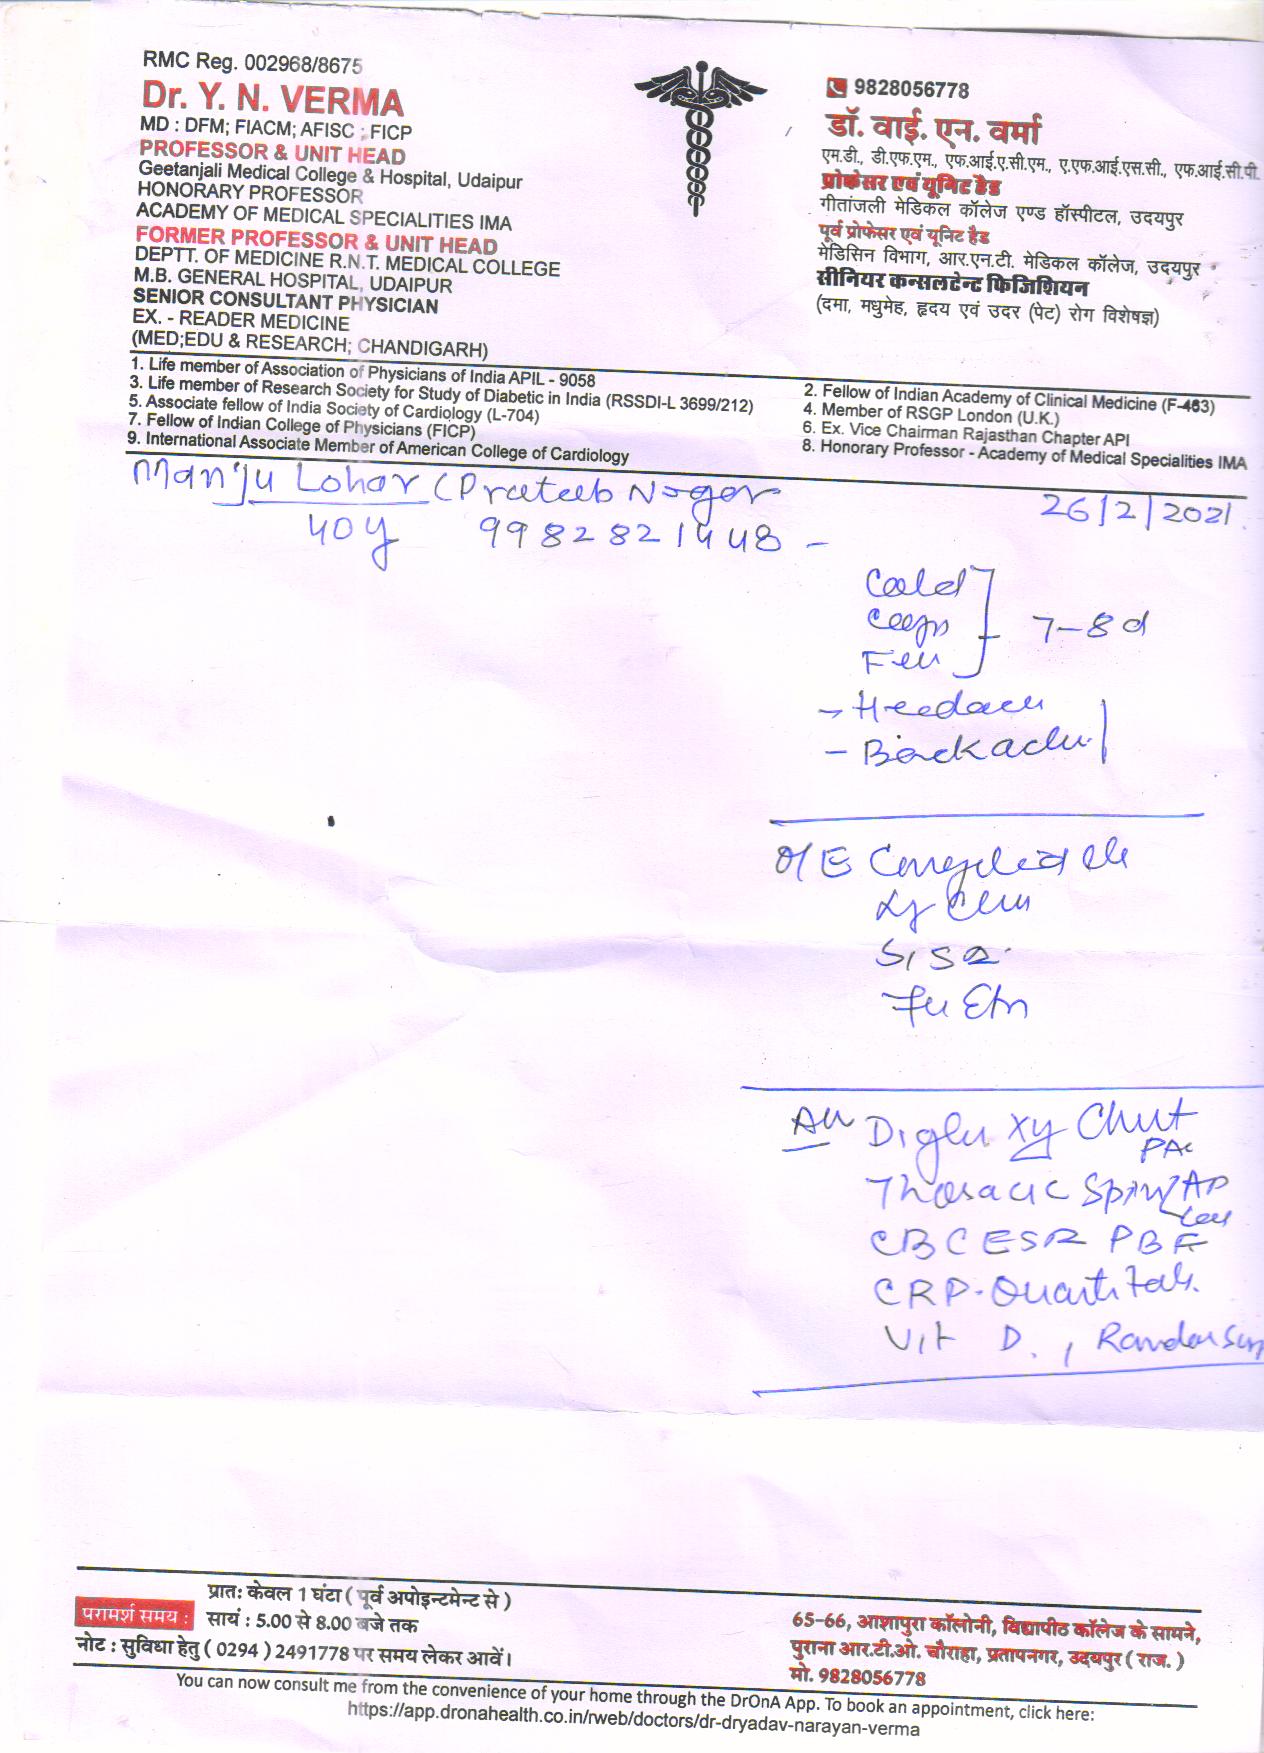 RMC Reg. 002968/8675
Dr. Y. N. VERMA
MD : DFM; FIACM; AFISC ; FICP
PROFESSOR & UNIT HEAD
Geetanjali Medical College & Hospital, Udaipur
HONORARY PROFESSOR
ACADEMY OF MEDICAL SPECIALITIES IMA
FORMER PROFESSOR & UNIT HEAD
DEPTT. OF MEDICINE R.N.T. MEDICAL COLLEGE
M.B. GENERAL HOSPITAL, UDAIPUR
SENIOR CONSULTANT PHYSICIAN
EX. - READER MEDICINE
(MED;EDU & RESEARCH; CHANDIGARH)
9828056778
डॉ. वाई. एन. वर्मा
एम.डी., डी.एफ.एम., एफ.आई.ए.सी.एम., ए.एफ.आई.एस.सी., एफ.आई.सी.पी.
प्रोफेसर एवं यूनिट हैड
गीतांजली मेडिकल कॉलेज एण्ड हॉस्पीटल, उदयपुर
पूर्व प्रोफेसर एवं यूनिट हैड
मेडिसिन विभाग, आर.एन.टी. मेडिकल कॉलेज, उदयपुर
सीनियर कन्सलटेन्ट फिजिशियन
(दमा, मधुमेह, हृदय एवं उदर (पेट) रोग विशेषज्ञ)
1. Life member of Association of Physicians of India APIL - 9058
2. Fellow of Indian Academy of Clinical Medicine (F-463)
3. Life member of Research Society for Study of Diabetic in India (RSSDI-L 3699/212)
4. Member of RSGP London (U.K.)
5. Associate fellow of India Society of Cardiology (L-704)
6. Ex. Vice Chairman Rajasthan Chapter API
7. Fellow of Indian College of Physicians (FICP)
8. Honorary Professor - Academy of Medical Specialities IMA
9. International Associate Member of American College of Cardiology
Manju Lohar (Prateeb Nagar
26/2/2021
40y 9982821448 -
Cold
7-8 d
- Headache
- Backache
O/E
S1 S2
Digital Xy Chest
PA
Thoracic Spine AP
CBC ESR PBF
CRP-Quantitat.
Vit D., Random
परामर्श समय :
प्रातः केवल 1 घंटा ( पूर्व अपोइन्टमेन्ट से )
सायं : 5.00 से 8.00 बजे तक
नोट : सुविधा हेतु ( 0294 ) 2491778 पर समय लेकर आवें।
65-66, आशापुरा कॉलोनी, विद्यापीठ कॉलेज के सामने,
पुराना आर.टी.ओ. चौराहा, प्रतापनगर, उदयपुर ( राज. )
मो. 9828056778
You can now consult me from the convenience of your home through the DrOnA App. To book an appointment, click here:
https://app.dronahealth.co.in/rweb/doctors/dr-dryadav-narayan-verma